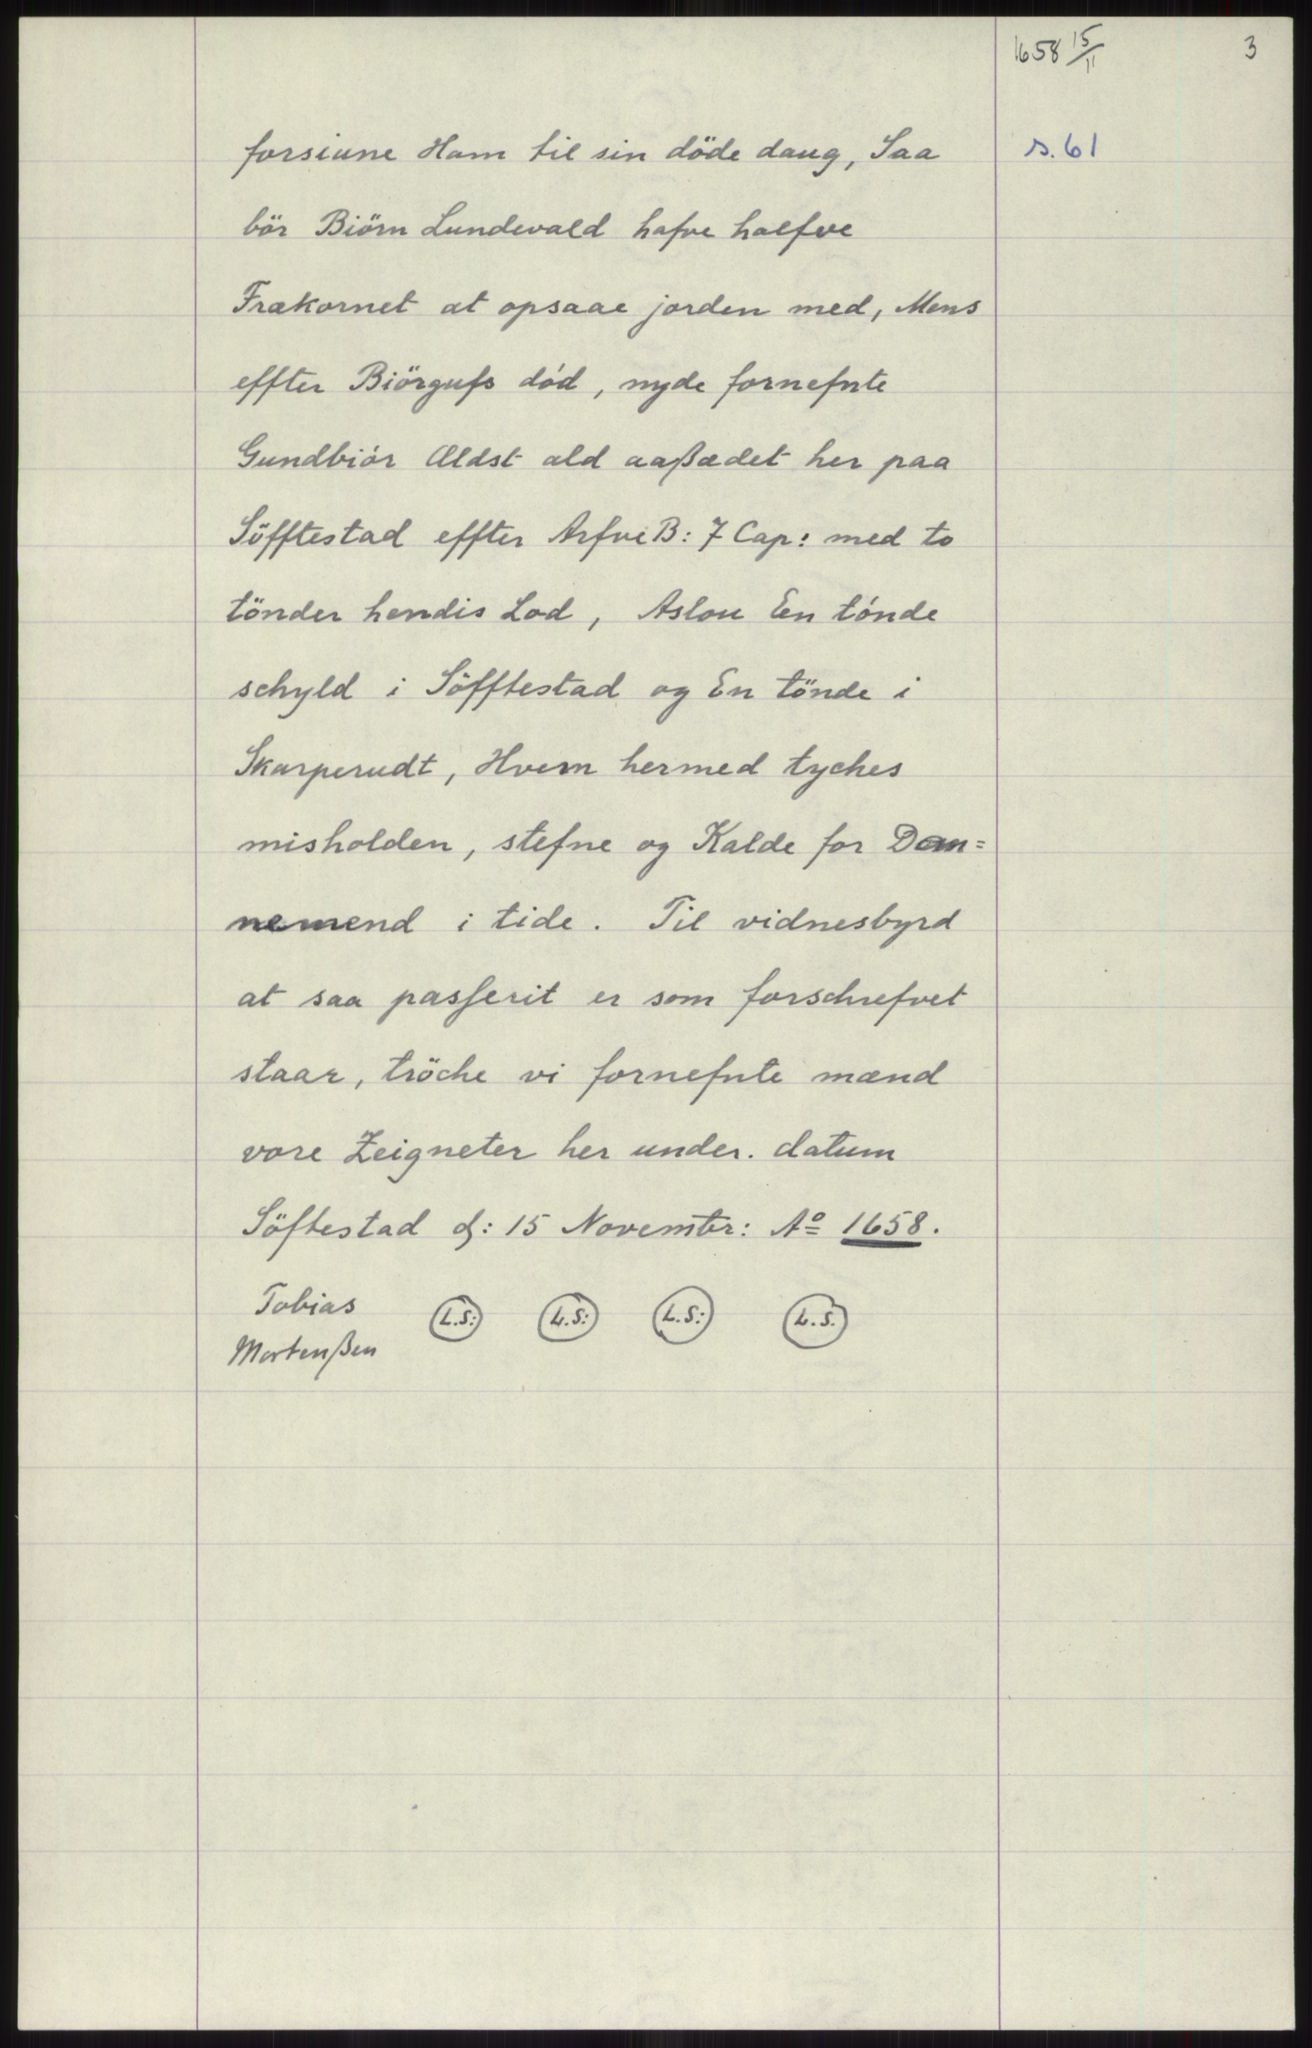 1658 15/11 3
forsiune Ham til sin döde daug, Saa s. 61
bör Biörn Lundevald hafve halfve
Frækornet at opsaae jorden med, Mens
effter Biörgufs död, nyde fornefnte
Gundbiör Ældst ald aaßædet her paa
Söfftestad effter Arfve B: 7 Cap: med to
tönder hendis Lod, Aslou En tönde
schyld i Söfftestad og En tönde i
Skarperudt, Hvem hermed tyches
misholden, stefne og Kalde for Dan=
nemend i tide. Til vidnesbyrd
at saa passerit er som forschrefvet
staar, tröche vi fornefnte mænd
vore Zeigneter her under. datum
Söftestad d: 15 Novembr: Aº 1658.
Tobias L.S: L.S: L.S: L.S.
Mortenßen